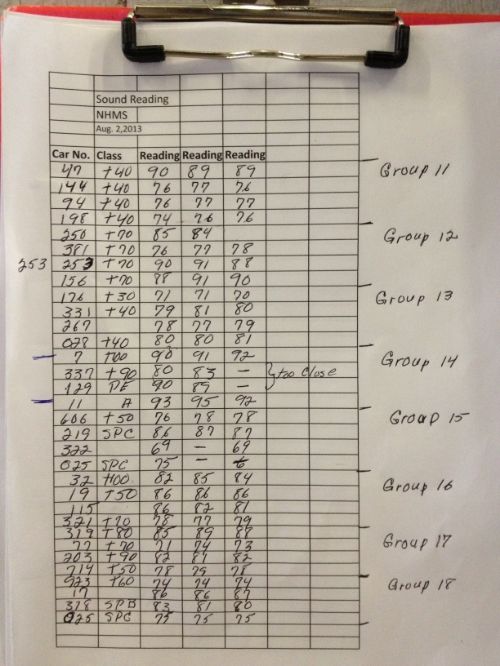 Sound Reading
NHMS
Aug. 2,2013
Car No. Class Reading Reading Reading
47 T40 90 89 89 Group 11
144 T40 76 77 76
94 T40 76 77 77
198 T40 74 76 76
250 T70 85 84 Group 12
381 T70 76 77 78
253 253 T70 90 91 88
156 T70 88 91 90
176 T30 71 71 70 Group 13
331 T40 79 81 80
267 78 77 79
028 T40 80 80 81
7 T00 90 91 92 Group 14
337 T90 80 83 — too close
129 PE 90 89 —
11 A 93 95 92
606 T50 76 78 78 Group 15
219 SPC 86 87 87
322 69 — 69
025 SPC 75 —
32 H00 82 85 84 Group 16
19 T50 86 86 86
115 86 82 81
321 T70 78 77 79
319 T80 85 89 88 Group 17
77 T70 71 74 73
203 T90 82 81 82
714 T50 78 79 78
923 T60 74 74 74 Group 18
17 86 86 87
318 SPB 83 81 80
025 SPC 75 75 75